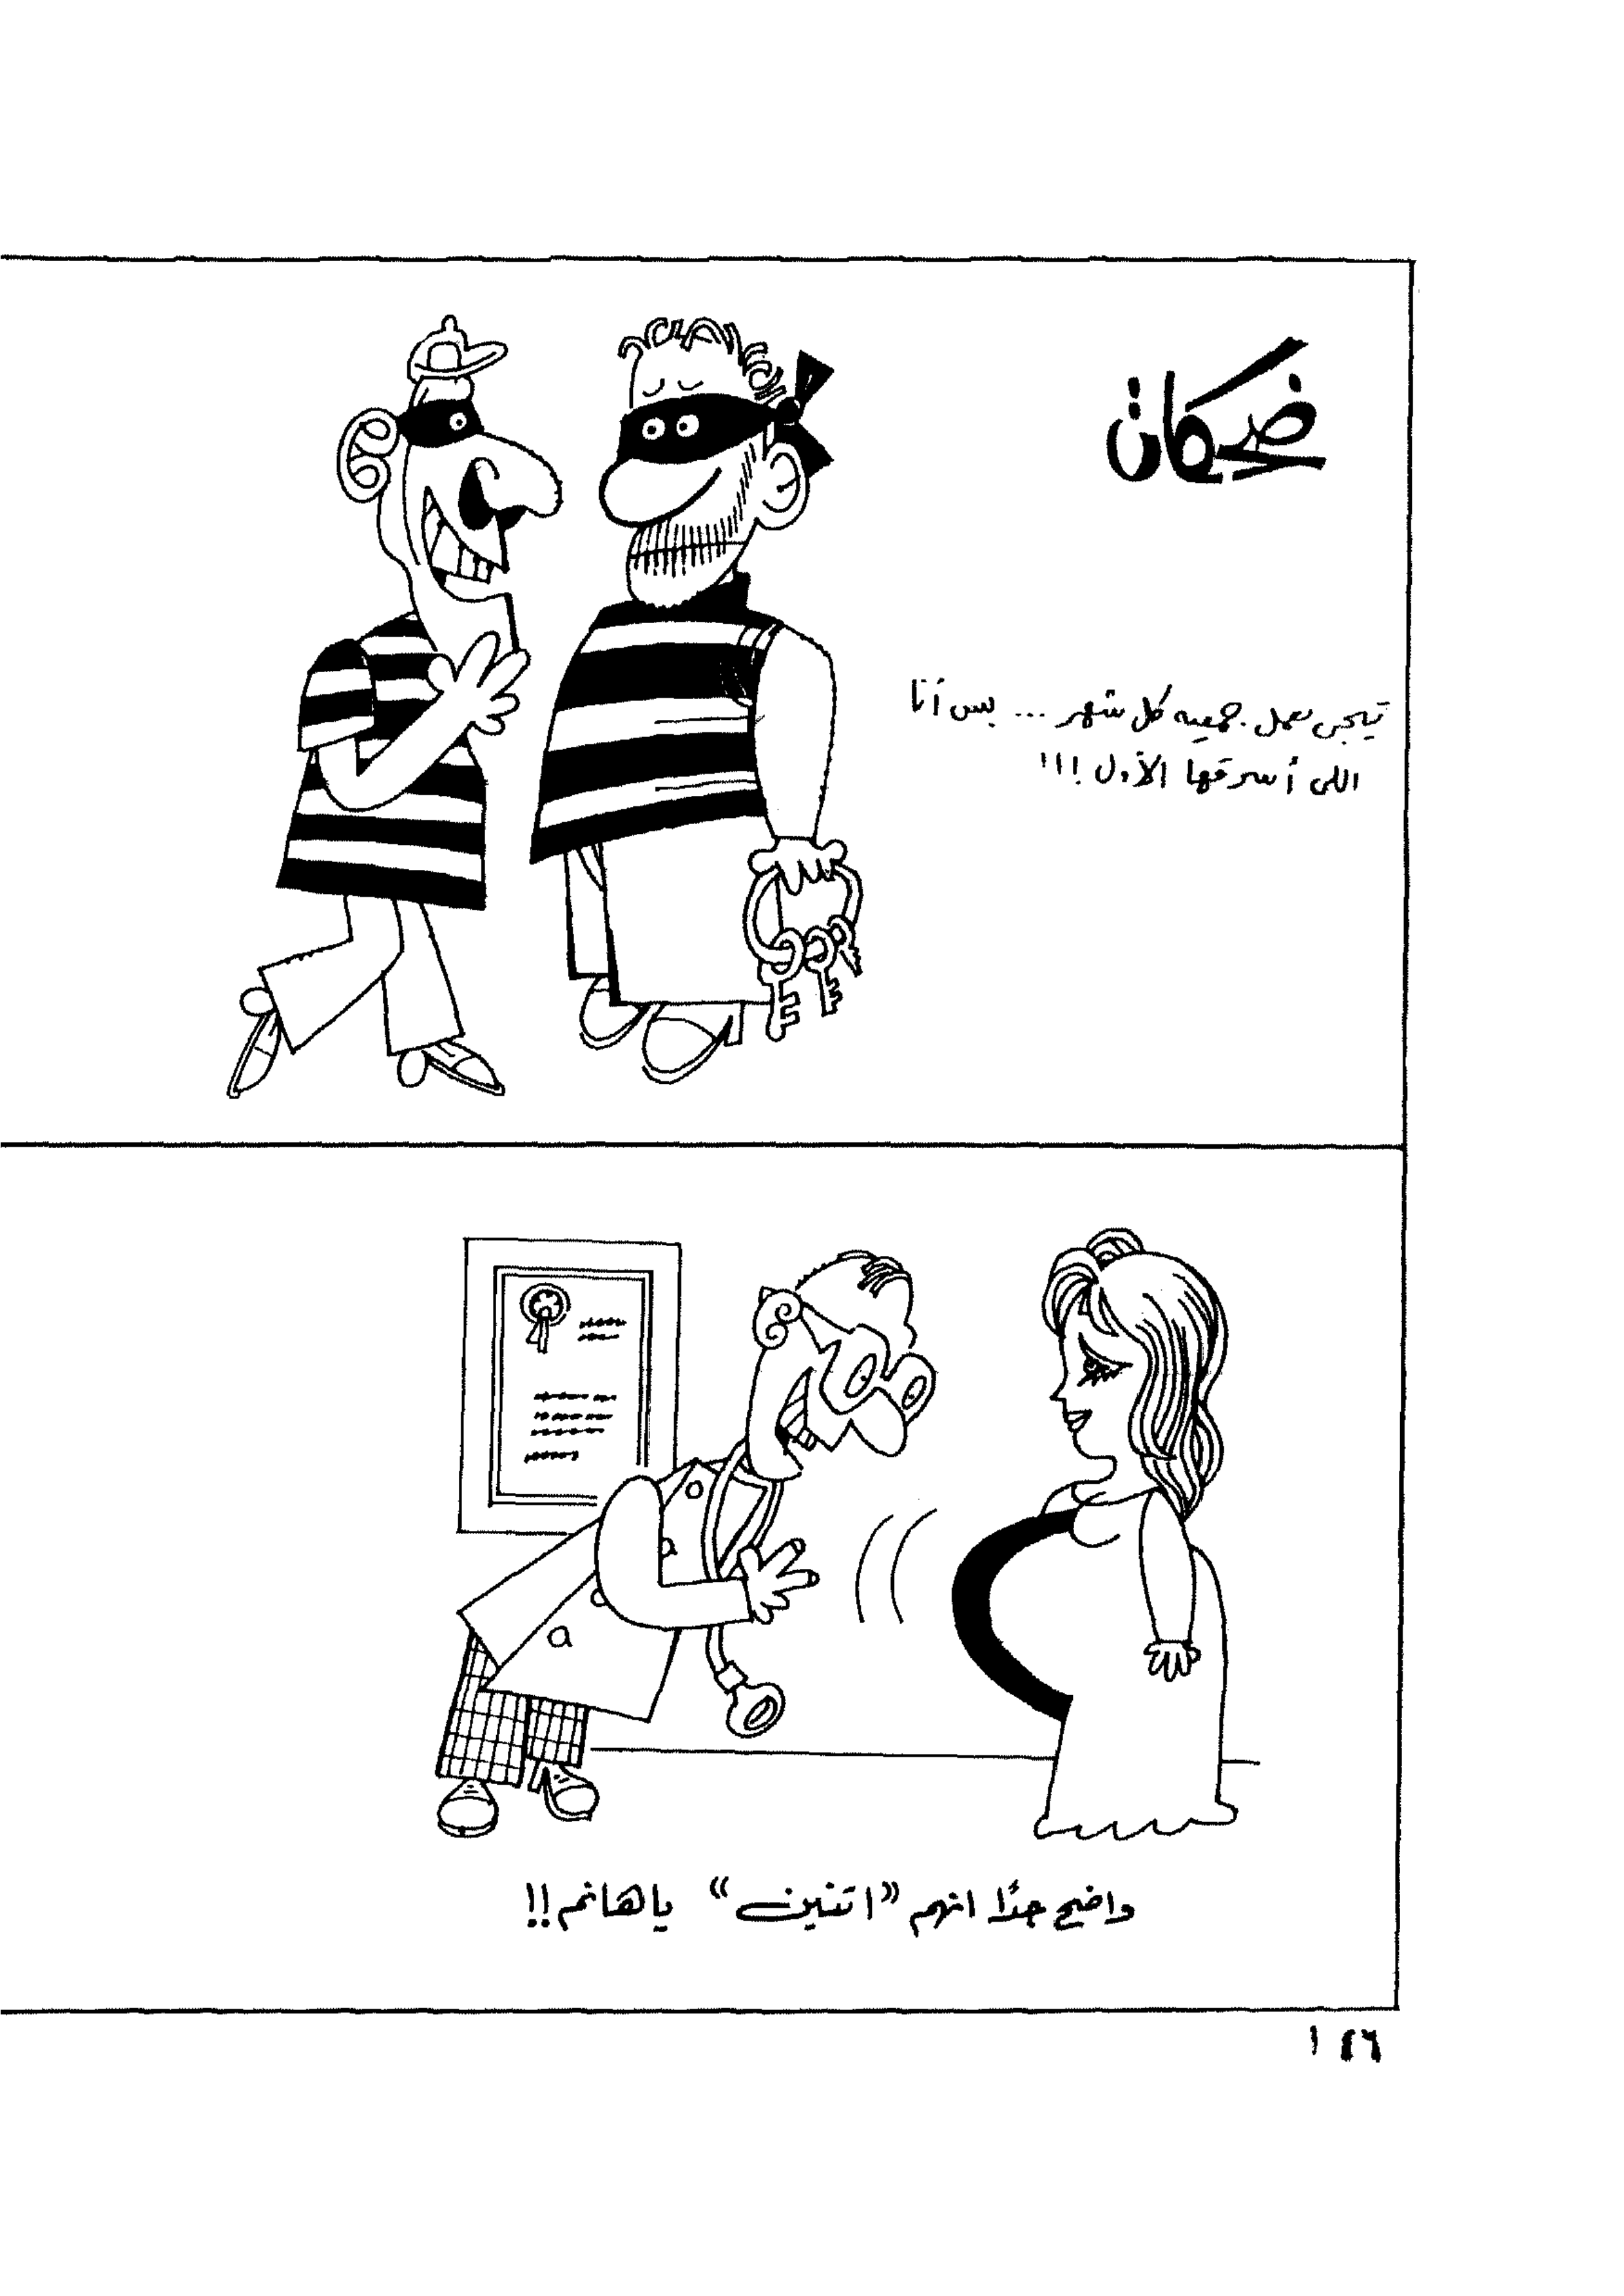 ضحكات
تيجى نعمل جمعيه كل شهر ... بس أنا
اللى أسرقها الأول !!!
واضح جدًا انهم "اتنين" يا هانم !!
١٤٦